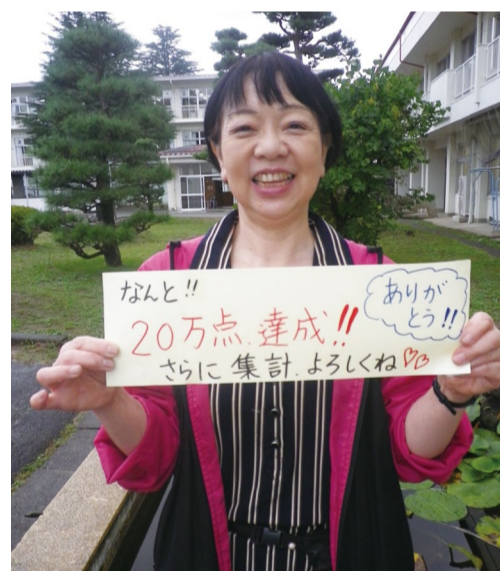 なんと!!
20万点.達成!!
さらに集計.よろしくね♡♡
ありが
とう!!